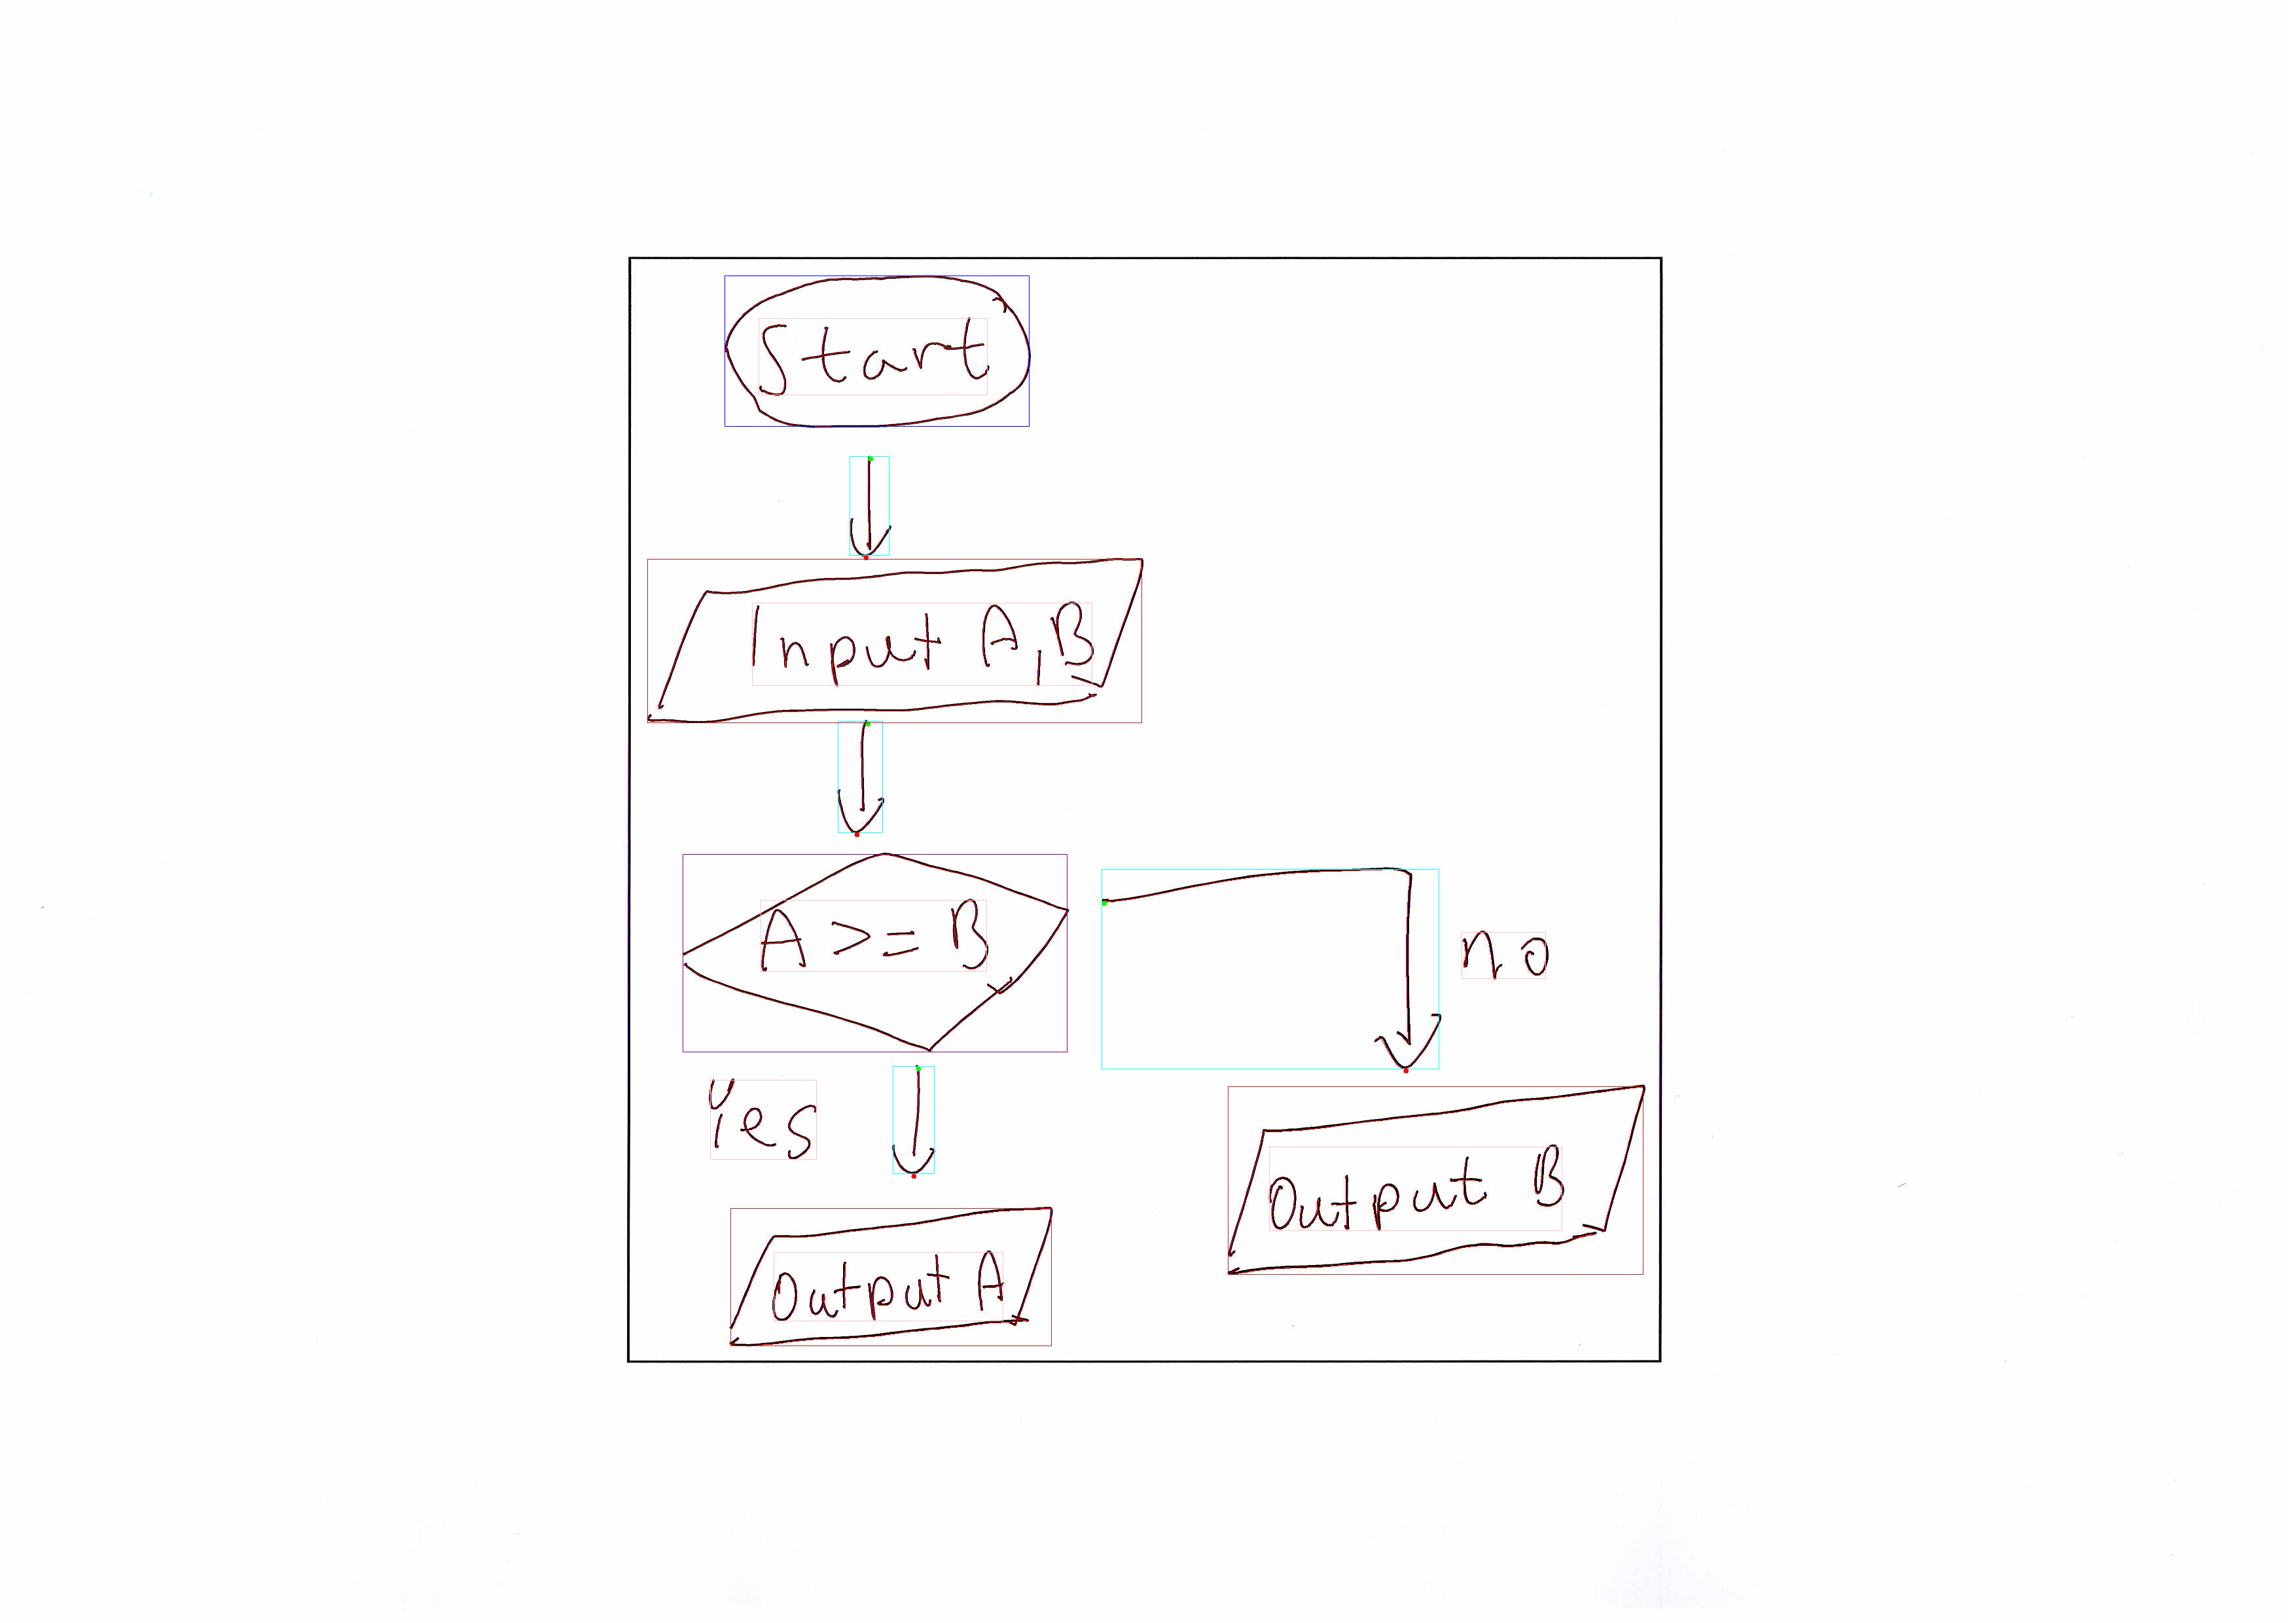 Start
Input A,B
A >= B
no
Yes
Output B
Output A